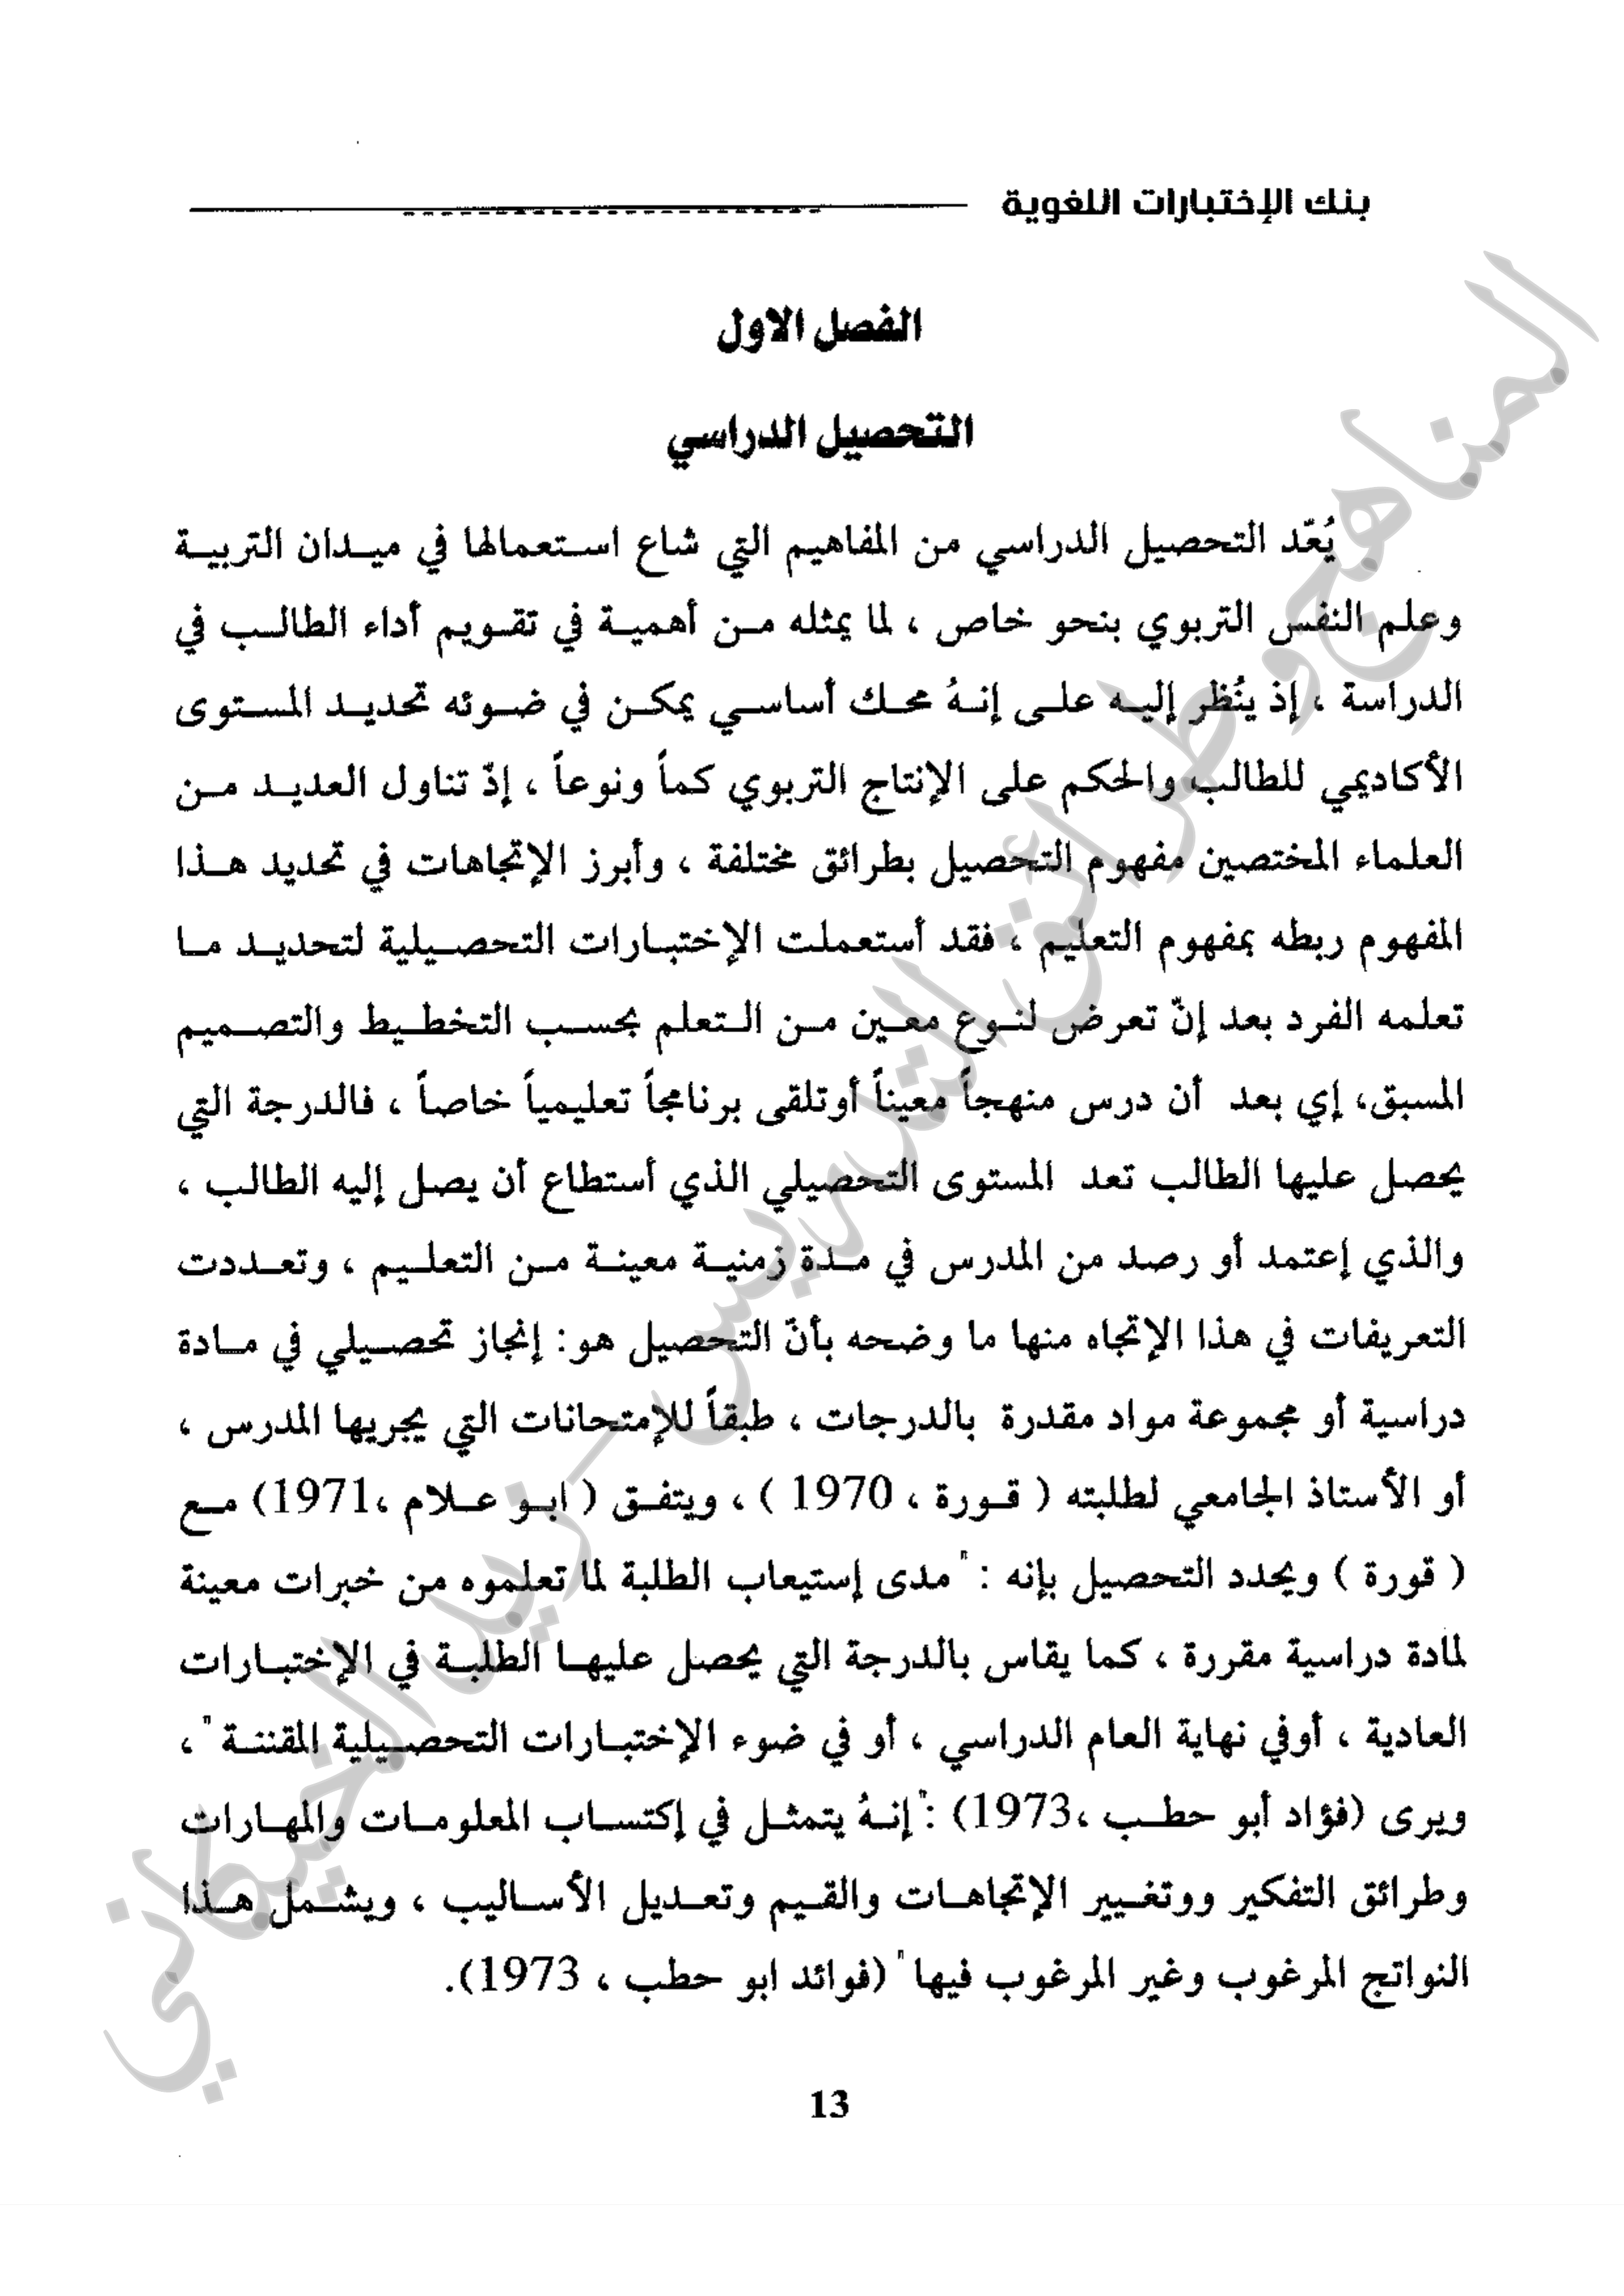 بنك الإختبارات اللغوية
الفصل الاول
التحصيل الدراسي
يُعّد التحصيل الدراسي من المفاهيم التي شاع استعمالها في ميدان التربية
وعلم النفس التربوي بنحو خاص ، لما يمثله من أهمية في تقويم أداء الطالب في
الدراسة ، إذ ينُظر إليه على إنهُ محك أساسي يمكن في ضوئه تحديد المستوى
الأكاديمي للطالب والحكم على الإنتاج التربوي كماً ونوعاً ، إذّ تناول العديد من
العلماء المختصين مفهوم التحصيل بطرائق مختلفة ، وأبرز الإتجاهات في تحديد هذا
المفهوم ربطه بمفهوم التعليم ، فقد أستعملت الإختبارات التحصيلية لتحديد ما
تعلمه الفرد بعد إنّ تعرض لنوع معين من التعلم بحسب التخطيط والتصميم
المسبق، إي بعد أن درس منهجاً معيناً أوتلقى برنامجاً تعليمياً خاصاً ، فالدرجة التي
يحصل عليها الطالب تعد المستوى التحصيلي الذي أستطاع أن يصل إليه الطالب ،
والذي إعتمد أو رصد من المدرس في مدة زمنية معينة من التعليم ، وتعددت
التعريفات في هذا الإتجاه منها ما وضحه بأنّ التحصيل هو: إنجاز تحصيلي في مادة
دراسية أو مجموعة مواد مقدرة بالدرجات ، طبقاً للإمتحانات التي يجريها المدرس ،
أو الأستاذ الجامعي لطلبته ( قورة ، 1970 ) ، ويتفق ( ابو علام ،1971) مع
( قورة ) ويحدد التحصيل بإنه : " مدى إستيعاب الطلبة لما تعلموه من خبرات معينة
لمادة دراسية مقررة ، كما يقاس بالدرجة التي يحصل عليها الطلبة في الإختبارات
العادية ، أوفي نهاية العام الدراسي ، أو في ضوء الإختبارات التحصيلية المقننة " ،
ويرى (فؤاد أبو حطب ،1973) :"إنهُ يتمثل في إكتساب المعلومات والمهارات
وطرائق التفكير ووتغيير الإتجاهات والقيم وتعديل الأساليب ، ويشمل هذا
النواتج المرغوب وغير المرغوب فيها " (فوائد ابو حطب ، 1973).
13
المناهج وطرائق التدريس - زيد الخيكاني